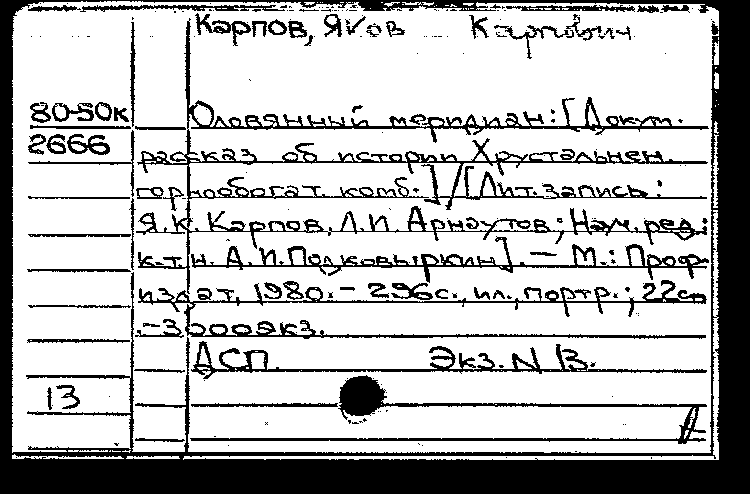 Карпов, Яков Карпович
80-50к Оловянный меридиан: [Докум.
2666 рассказ об истории Хрустальнен.
горнообогат. комб.] / [Лит. запись:
Я.К. Карпов, Л.И. Арнаутов; Науч. ред.:
к.т.н. А.И. Полковыркин]. — М.: Проф-
издат, 1980. - 296с., ил., портр.; 22см
. - 3000экз.
ДСП. Экз. N 13.
13